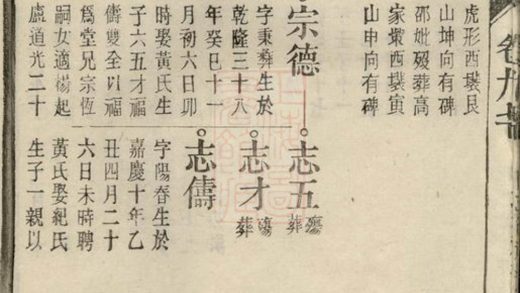 卷九
虎形西塟艮
山坤向有碑
邵妣殁葬高
家墩西塟寅
山申向有碑
宗德
字秉彝生於
乾隆三十八
年癸巳十一
月初六日卯
時娶黃氏生
子六五才福
儔雙全以福
爲堂兄宗恆
嗣女適楊起
廬道光二十
志五 殤葬
志才 殤葬
志儔
字陽春生於
嘉慶十年乙
丑四月二十
六日未時聘
黃氏娶紀氏
生子一親以